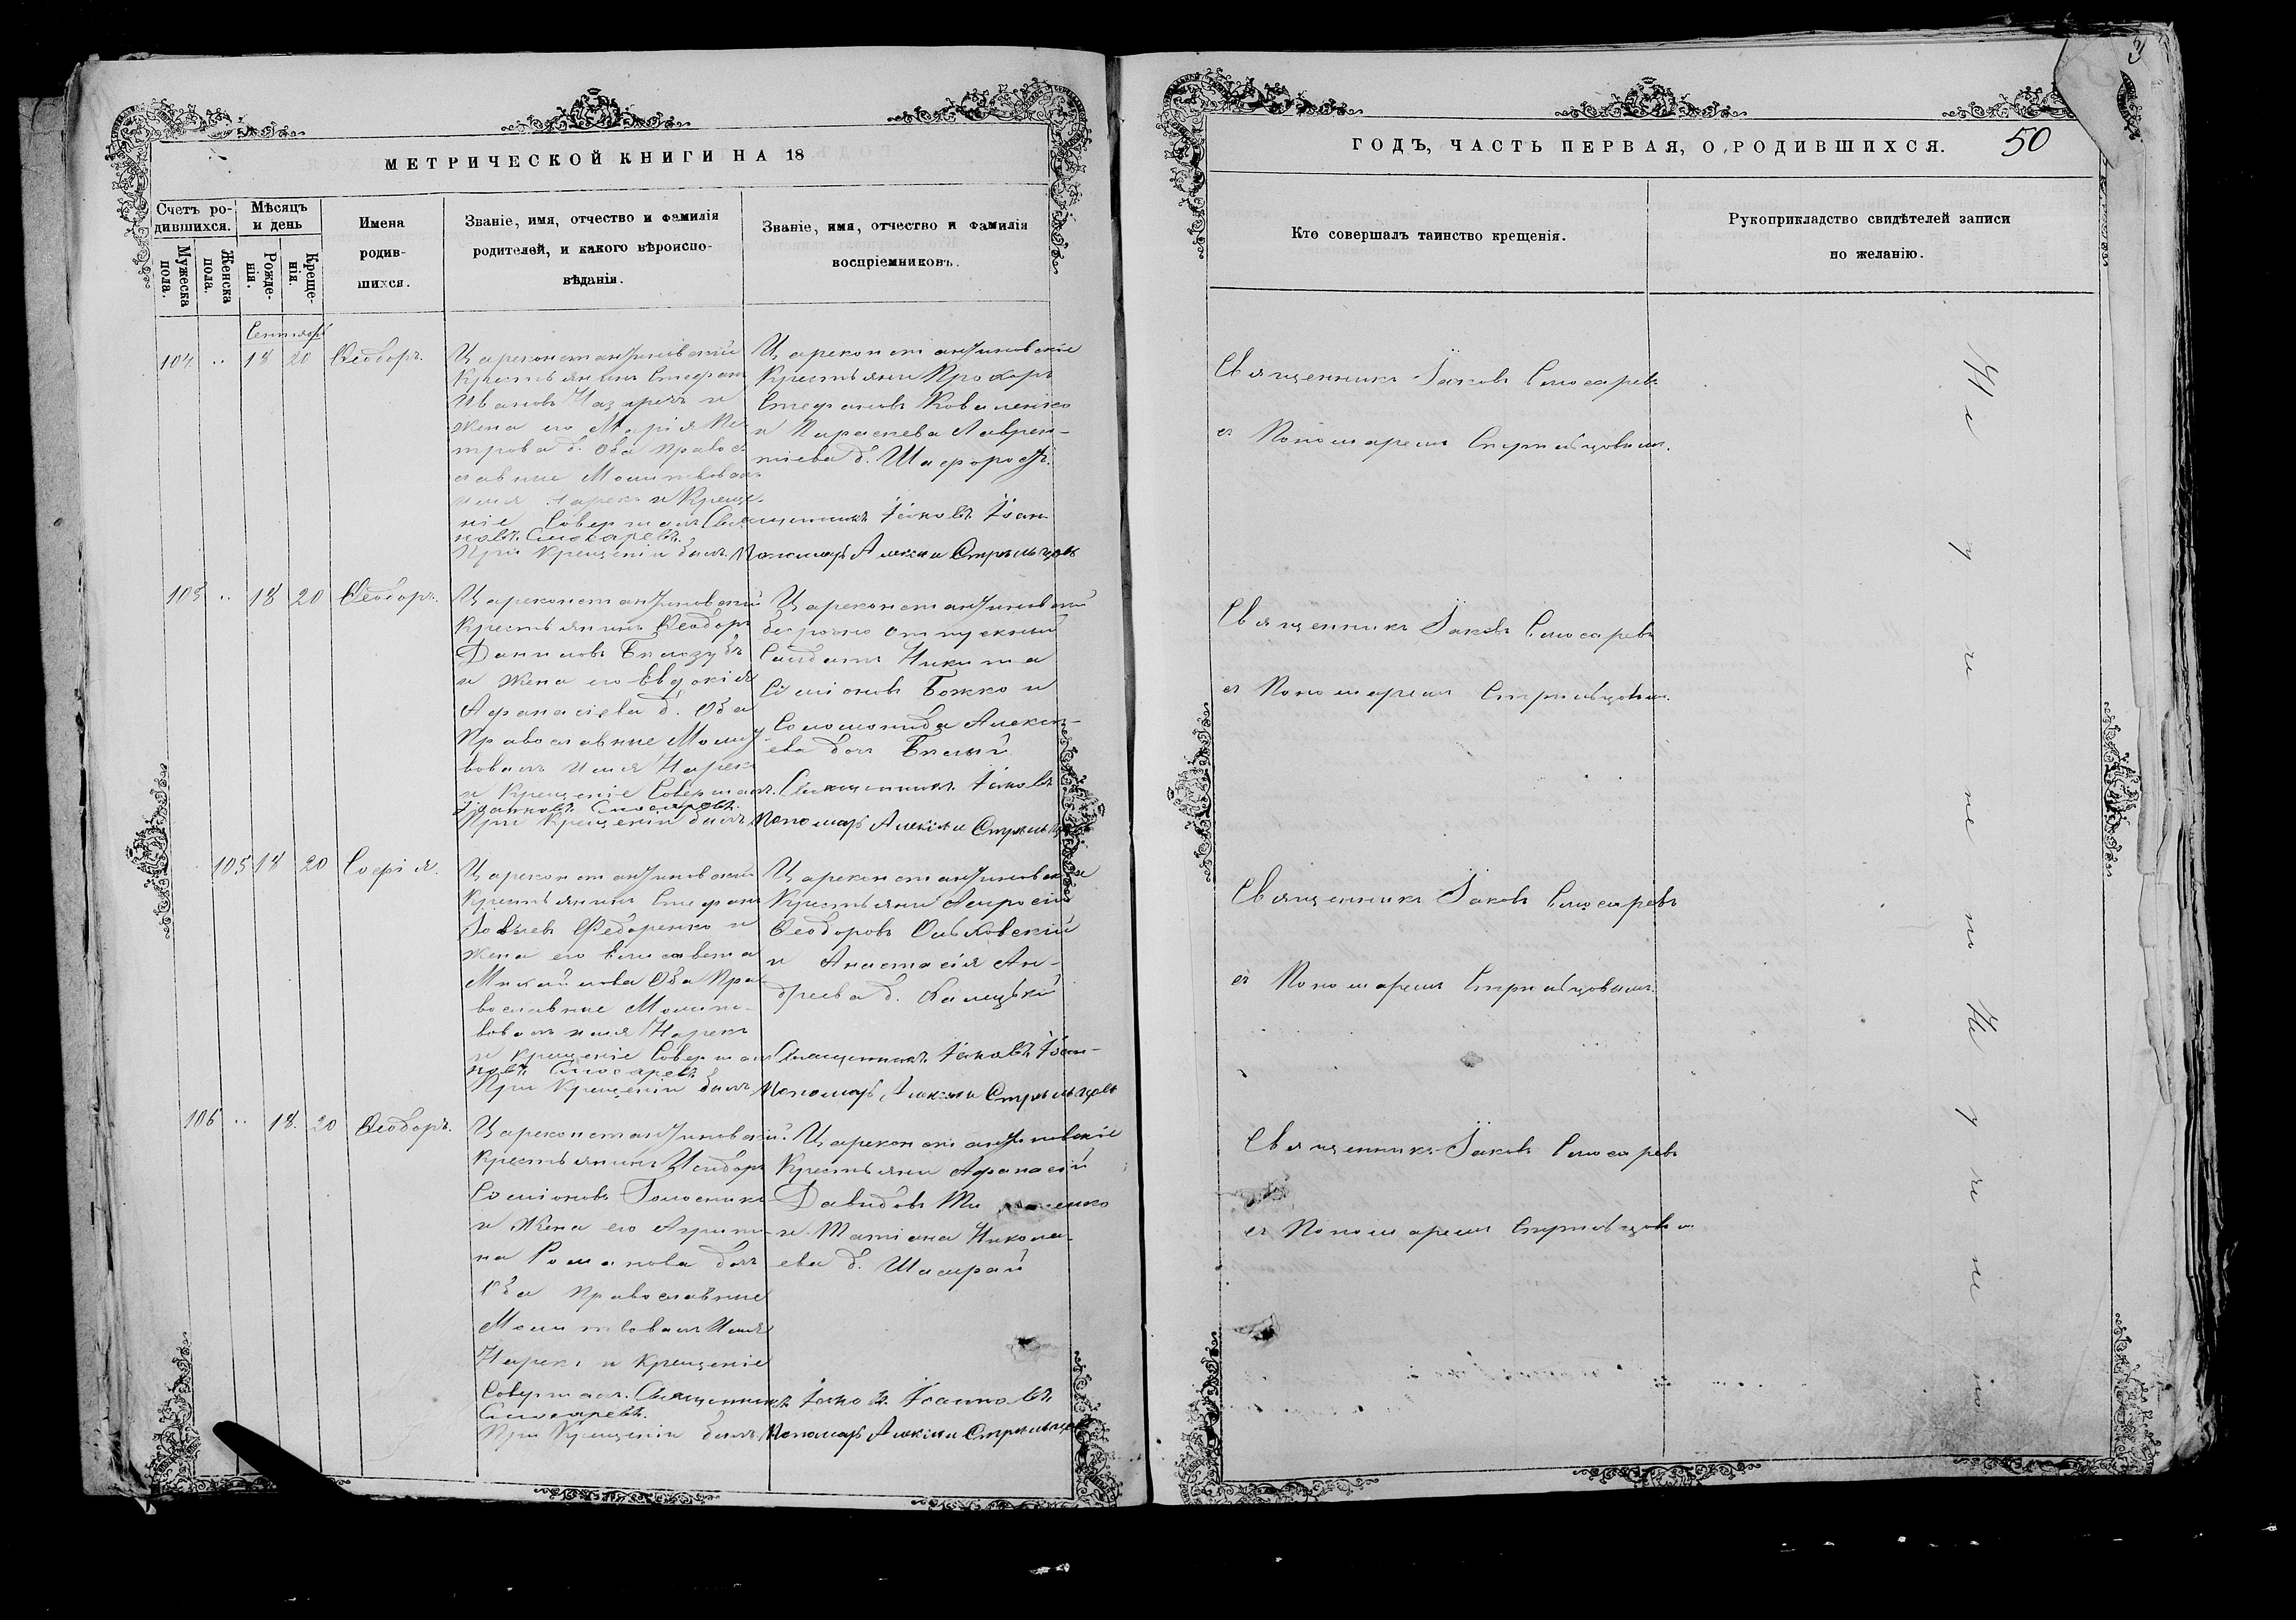 МЕТРИЧЕСКОЙ КНИГИ НА 18
Счетъ ро-
дившихся.
Мужеска
пола.
Женска
пола.
Мѣсяцъ
и день
Рожде-
нія.
Креще-
нія.
Имена
родив-
шихся.
Званіе, имя, отчество и фамилія
родителей, и какого вѣроиспо-
вѣданія.
Званіе, имя, отчество и фамилія
воспріемниковъ.
104 18 20 Ѳеодоръ.
Цареконстантиновскій
Крестьянинъ Стефанъ
Ивановъ и
жена его Марія Пе-
трова д. Оба правос-
лавные Молитвовалъ
имя нарекъ и Креще-
ніе Совершалъ
новъ Слюсаревъ.
При Крещеніи былъ
Цареконстантиновскіе
Крестьяни Прохоръ
Стефановъ Коваленко
и Параскева Лаврен-
тіева д.
Священникъ Іаковъ Іоан-
Пономарь Алексій Стрельцовъ
105 18 20 Ѳеодоръ.
Цареконстантиновскій
Крестьянинъ Ѳеодоръ
Даниловъ Билозубъ
и жена его Евдокія
Афанасіева д. Оба
Православные Молит
вовалъ имя Нарекъ
и Крещеніе Совершалъ.
Іоанновъ Слюсаревъ.
При Крещеніи былъ
Цареконстантиновскій
безсрочно отпускный
Салдатъ Никита
Сіміоновъ Божко и
Соломонида Алексе-
ева доч
Священникъ Іаковъ
Пономарь Алексій Стрельцовъ
105 18 20 Софія.
Цареконстантиновскій
Крестьянинъ Стефанъ
Іовлевъ Федоренко и
жена его Елисавета
Михайлова Оба Пра-
вославные Молит-
вовалъ имя Нарекъ
и крещеніе Совершалъ
новъ Слюсаревъ
При Крещеніи былъ
Цареконстантиновские
Крестьяни Амвросій
Ѳеодоровъ Ольховскій
и Анастасія Ан-
дреева д.
Священникъ Іаковъ Іоан-
Пономарь Алексій Стрельцовъ
106 18. 20 Ѳеодоръ.
Цареконстантиновскій
Крестьянинъ Исидоръ
Сіміоновъ
и Жена его Агрипи-
на Романова доч
Оба Православные
Молитвовалъ Имя
Нарекъ и Крещеніе
Совершалъ. Священникъ Іаковъ Іоанновъ
Слюсаревъ.
При Крещеніи былъ Пономарь Алексій Стрельцовъ
Цареконстантиновскіе
Крестьяни Афанасій
Давидовъ
и Татіана Никола-
ева д. Шамрай
ГОДЪ, ЧАСТЬ ПЕРВАЯ, О РОДИВШИХСЯ.
50
Кто совершалъ таинство крещенія.
Рукоприкладство свидѣтелей записи
по желанію.
Священникъ Іаковъ Слюсаревъ
съ Пономаремъ Стрельцовымъ.
Священникъ Іаковъ Слюсаревъ
съ Пономаремъ Стрельцовымъ.
Священникъ Іаковъ Слюсаревъ
съ Пономаремъ Стрельцовымъ.
Священникъ Іаковъ Слюсаревъ
съ Пономаремъ Стрельцовым